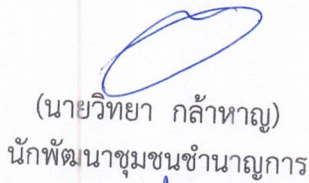 (นายวิทยา กล้าหาญ)
นักพัฒนาชุมชนชำนาญการ